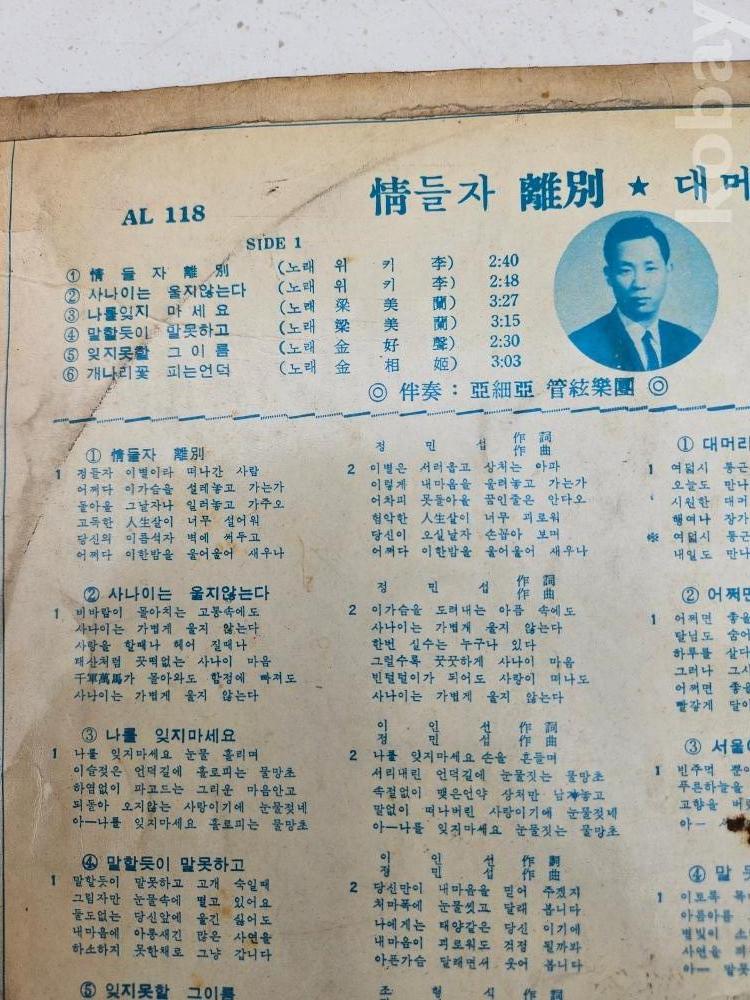 kobay
AL 118
情들자 離別 ★ 대머
SIDE 1
① 情들자離別 (노래 위키李) 2:40
② 사나이는 울지않는다 (노래 위키李) 2:48
③ 나를잊지 마세요 (노래 梁美蘭) 3:27
④ 말할듯이 말못하고 (노래 梁美蘭) 3:15
⑤ 잊지못할 그이름 (노래 金好聲) 2:30
⑥ 개나리꽃 피는언덕 (노래 金相姬) 3:03
◎ 伴奏: 亞細亞 管絃樂團 ◎
① 情들자 離別
정민섭 作詞 作曲
1 정들자 이별이라 떠나간 사람
어쩌다 이가슴을 설레놓고 가는가
돌아올 그날자나 일러놓고 가주오
고독한 人生살이 너무 설어워
당신의 이름석자 벽에 써두고
어쩌다 이한밤을 울어울어 새우나
2 이별은 서러웁고 상처는 아파
이렇게 내마음을 울려놓고 가는가
어차피 못돌아올 꿈인줄은 안다오
험악한 人生살이 너무 괴로워
당신이 오실날자 손꼽아 보며
어쩌다 이한밤을 울어울어 새우나
② 사나이는 울지않는다
정민섭 作詞 作曲
1 비바람이 몰아치는 고통속에도
사나이는 가볍게 울지 않는다
사랑을 할때나 헤어 질때나
태산처럼 끗떡없는 사나이 마음
千軍萬馬가 몰아와도 함정에 빠져도
사나이는 가볍게 울지 않는다
2 이가슴을 도려내는 아픔 속에도
사나이는 가볍게 울지 않는다
한번 실수는 누구나 있다
그럴수록 꿋꿋하게 사나이 마음
빈털털이가 되어도 사랑이 떠나도
사나이는 가볍게 울지 않는다
③ 나를 잊지마세요
이인선 作詞
정민섭 作曲
1 나를 잊지마세요 눈물 흘리며
이슬젖은 언덕길에 홀로피는 물망초
하염없이 파고드는 그리운 마음안고
되돌아 오지않는 사랑이기에 눈물젖네
아—나를 잊지마세요 홀로피는 물망초
2 나를 잊지마세요 손을 흔들며
서리내린 언덕길에 눈물짓는 물망초
속절없이 맺은언약 상처만 남겨놓고
말없이 떠나버린 사랑이기에 눈물젖네
아—나를 잊지마세요 눈물짓는 물망초
④ 말할듯이 말못하고
이인선 作詞
정민섭 作曲
1 말할듯이 말못하고 고개 숙일때
그림자만 눈물속에 떨고 있어요
둘도없는 당신앞에 울긴 싫어도
내마음에 아롱새긴 많은 사연을
하소하지 못한채로 그냥 갑니다
2 당신만이 내마음을 믿어 주겠지
처마폭에 눈물씻고 달래 봅니다
나에게는 태양같은 당신 이기에
내마음이 괴로워도 걱정 될까봐
아픈가슴 달래면서 웃어 봅니다
⑤ 잊지못할 그이름
작詞
① 대머리
1 여덟시 통근
오늘도 만나
시원한 대머
행여나 장가
※ 여덟시 통근
내일도 만나
② 어쩌면
1 어쩌면 좋을
달님도 숨어
하루를 살다
그러나 그시
어쩌면 좋을
빨갛게 달이
③ 서울이
1 빈주먹 뿐이
푸른하늘을
고향을 버
아—
④ 말 못
1 이토록 목
아픔아픔
별빛이 소
사연을 피
아— 말못